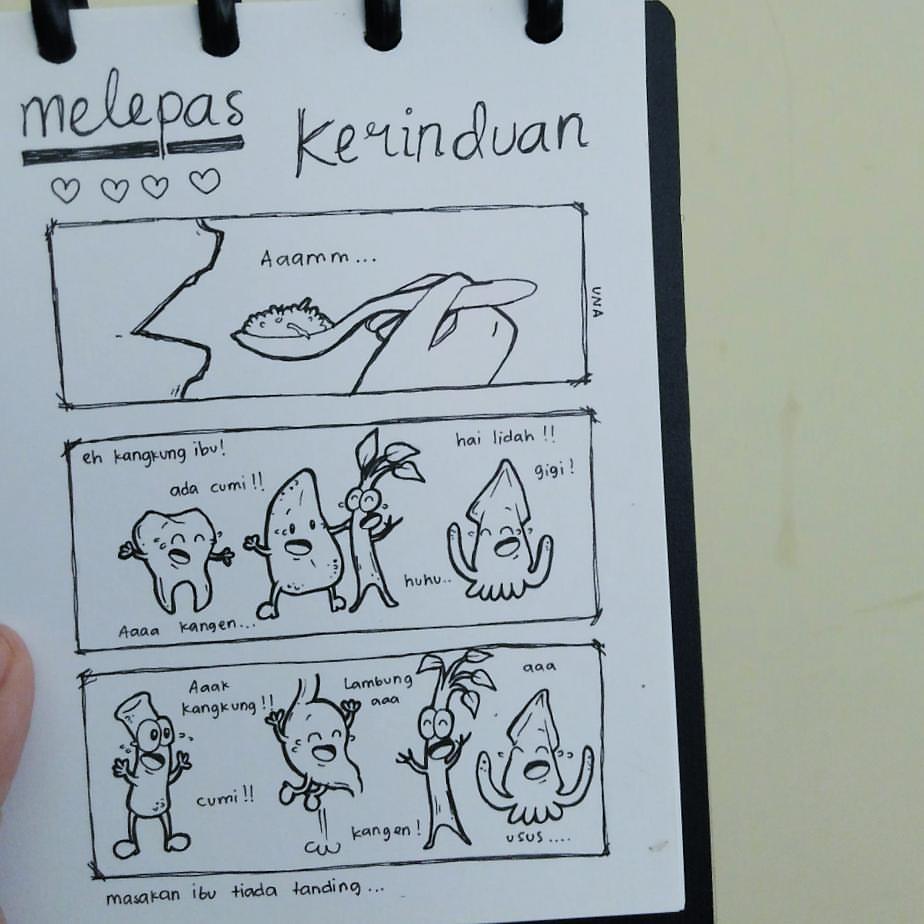 melepas
kerinduan
Aaamm...
UNA
eh kangkung ibu!
ada cumi!!
hai lidah!!
gigi!
huhu..
Aaaa kangen...
Aaak
kangkung!!
Lambung
aaa
aaa
cumi!!
kangen!
usus....
masakan ibu tiada tanding...